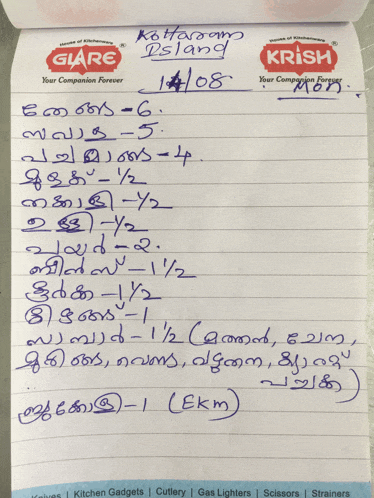 House of Kitchenware
GLARE
Your Companion Forever
Kottaram
Island
House of Kitchenware
KRISH
Your Companion Forever
14/08
Mon.
തേങ്ങ - 6.
സവാള - 5.
പച്ചമാങ്ങ - 4.
മുളക് - 1/2
തക്കാളി - 1/2
ഉള്ളി - 1/2
പയർ - 2.
ബീൻസ് - 1 1/2
കൂർക്ക - 1 1/2
കിഴങ്ങ് - 1
സാമ്പാർ - 1 1/2 (മത്തൻ, ചേന,
മുരിങ്ങ, വെണ്ട, വഴുതന, ക്യാരറ്റ്
പച്ചക്ക)
ബ്രൂക്കോളി - 1 (EKM)
Knives | Kitchen Gadgets | Cutlery | Gas Lighters | Scissors | Strainers